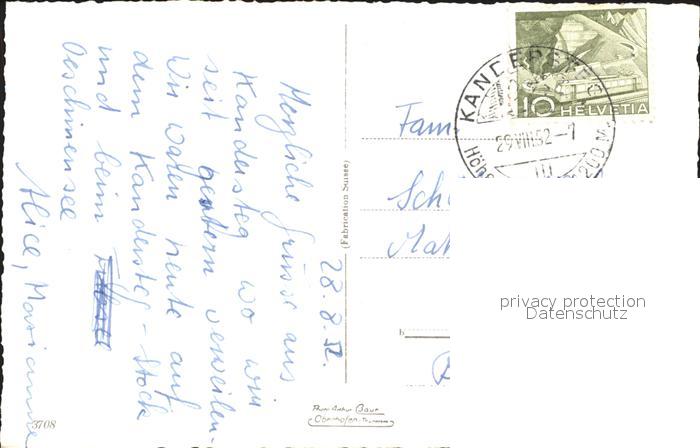 28. 8. 52.
Herzliche Grüsse aus
Kandersteg wo wir
seit gestern verweilen.
Wir waren heute auf
dem Kandersteg-Stock
und beim
Oeschinensee
Alice, Marianne
(Fabrication Suisse)
3708
KANDERSTEG
29.VIII.52-7
1200 M.
10 HELVETIA
Fam
Sch
Mat
privacy protection
Datenschutz
Photo Arthur Baur
Oberhofen